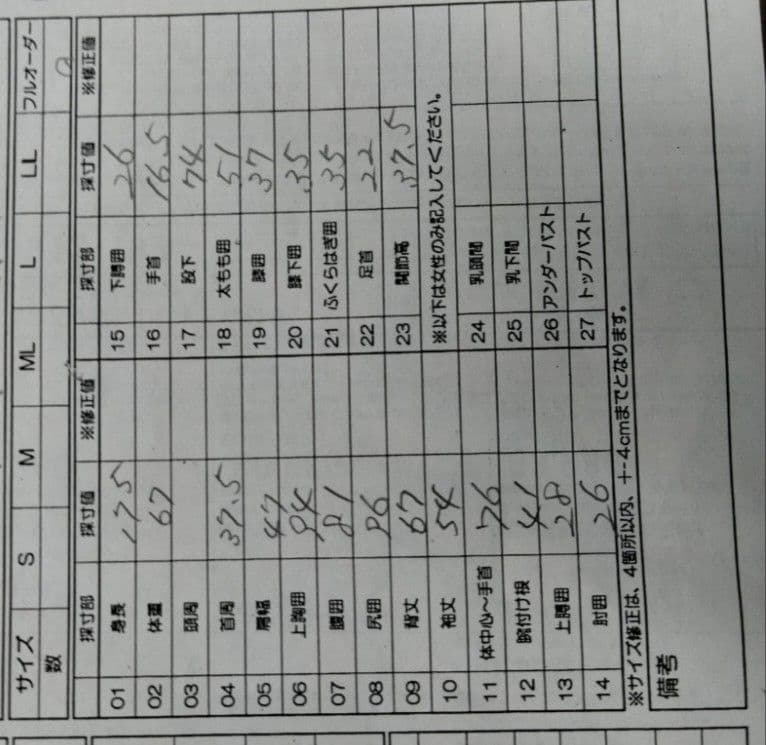 サイズ S M ML L LL フルオーダー
数
採寸部 採寸値 ※修正値 採寸部 採寸値 ※修正値
01 身長 175 15 下膊囲 26
02 体重 67 16 手首 16.5
03 頭周 17 股下 74
04 首周 37.5 18 太もも囲 51
05 肩幅 47 19 膝囲 37
06 上胸囲 94 20 膝下囲 35
07 腹囲 81 21 ふくらはぎ囲 35
08 尻囲 96 22 足首 22
09 背丈 67 23 関節高 37.5
10 袖丈 54 ※以下は女性のみ記入してください。
11 体中心～手首 76 24 乳頭間
12 腕付け根 41 25 乳下間
13 上膊囲 28 26 アンダーバスト
14 肘囲 26 27 トップバスト
※サイズ修正は、4箇所以内、+-4cmまでとなります。
備考